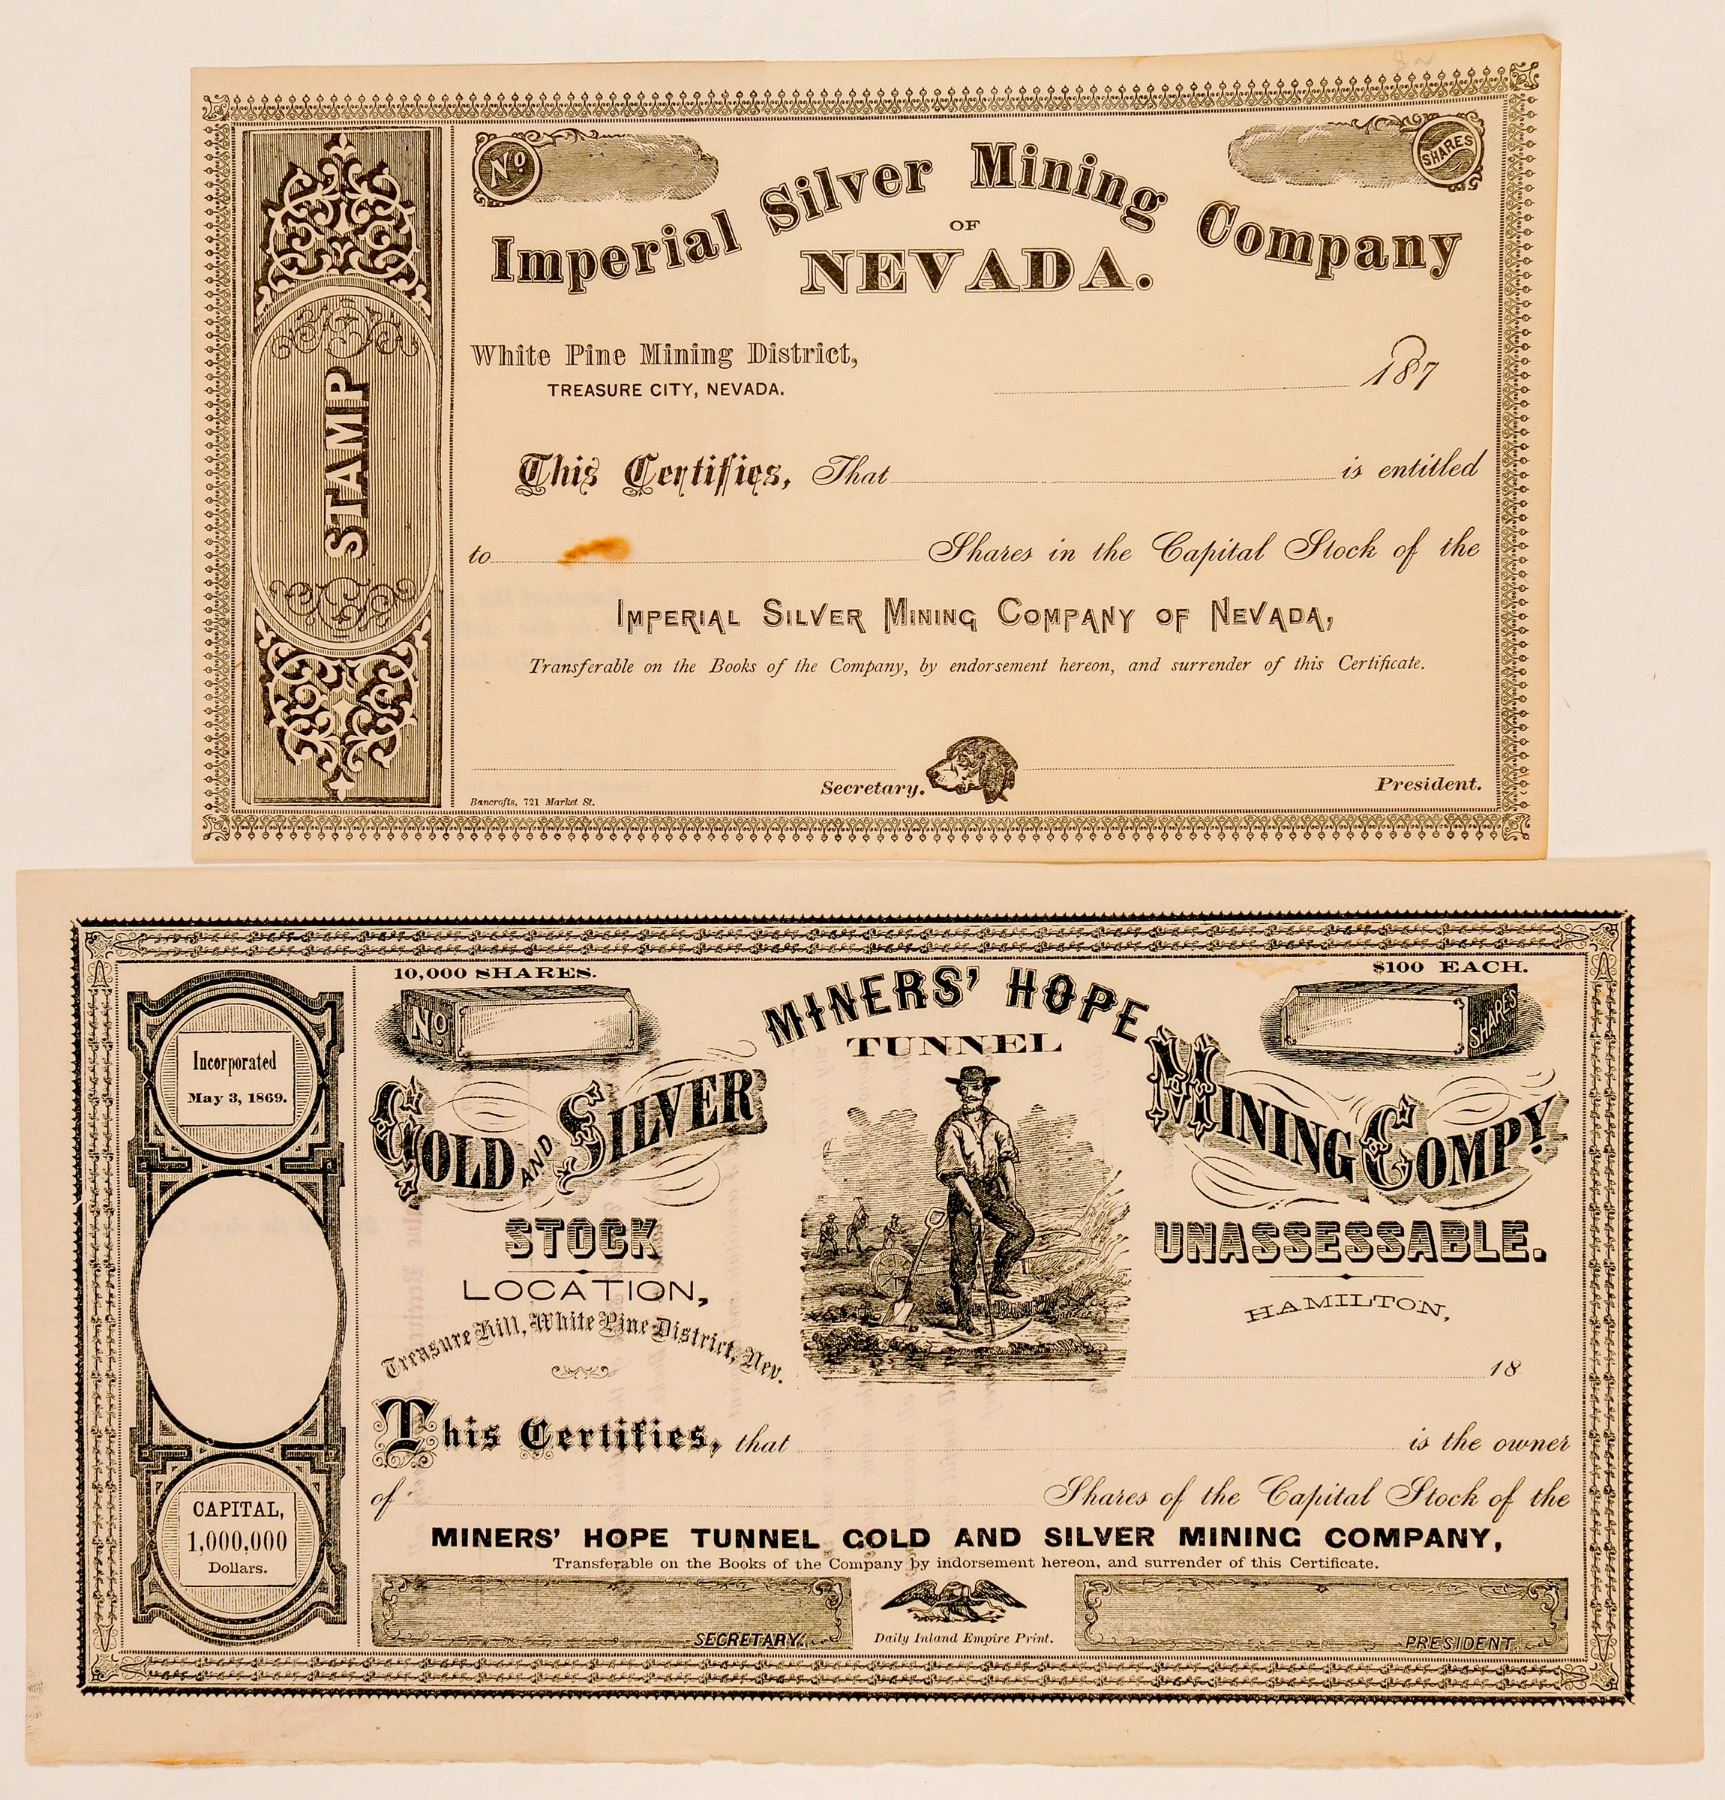 No
SHARES
Imperial Silver Mining Company
OF
NEVADA.
STAMP
White Pine Mining District,
TREASURE CITY, NEVADA.
187
This Certifies, That is entitled
to Shares in the Capital Stock of the
IMPERIAL SILVER MINING COMPANY OF NEVADA,
Transferable on the Books of the Company, by endorsement hereon, and surrender of this Certificate.
Secretary.
President.
Bancrofts, 721 Market St.
10,000 SHARES.
$100 EACH.
No.
SHARES
MINERS' HOPE
TUNNEL
GOLD AND SILVER
MINING COMPY.
Incorporated
May 3, 1869.
STOCK
UNASSESSABLE.
LOCATION,
Treasure Hill, White Pine District, Nev.
HAMILTON,
18
This Certifies, that is the owner
of Shares of the Capital Stock of the
MINERS' HOPE TUNNEL GOLD AND SILVER MINING COMPANY,
Transferable on the Books of the Company by indorsement hereon, and surrender of this Certificate.
CAPITAL,
1,000,000
Dollars.
SECRETARY.
Daily Inland Empire Print.
PRESIDENT.